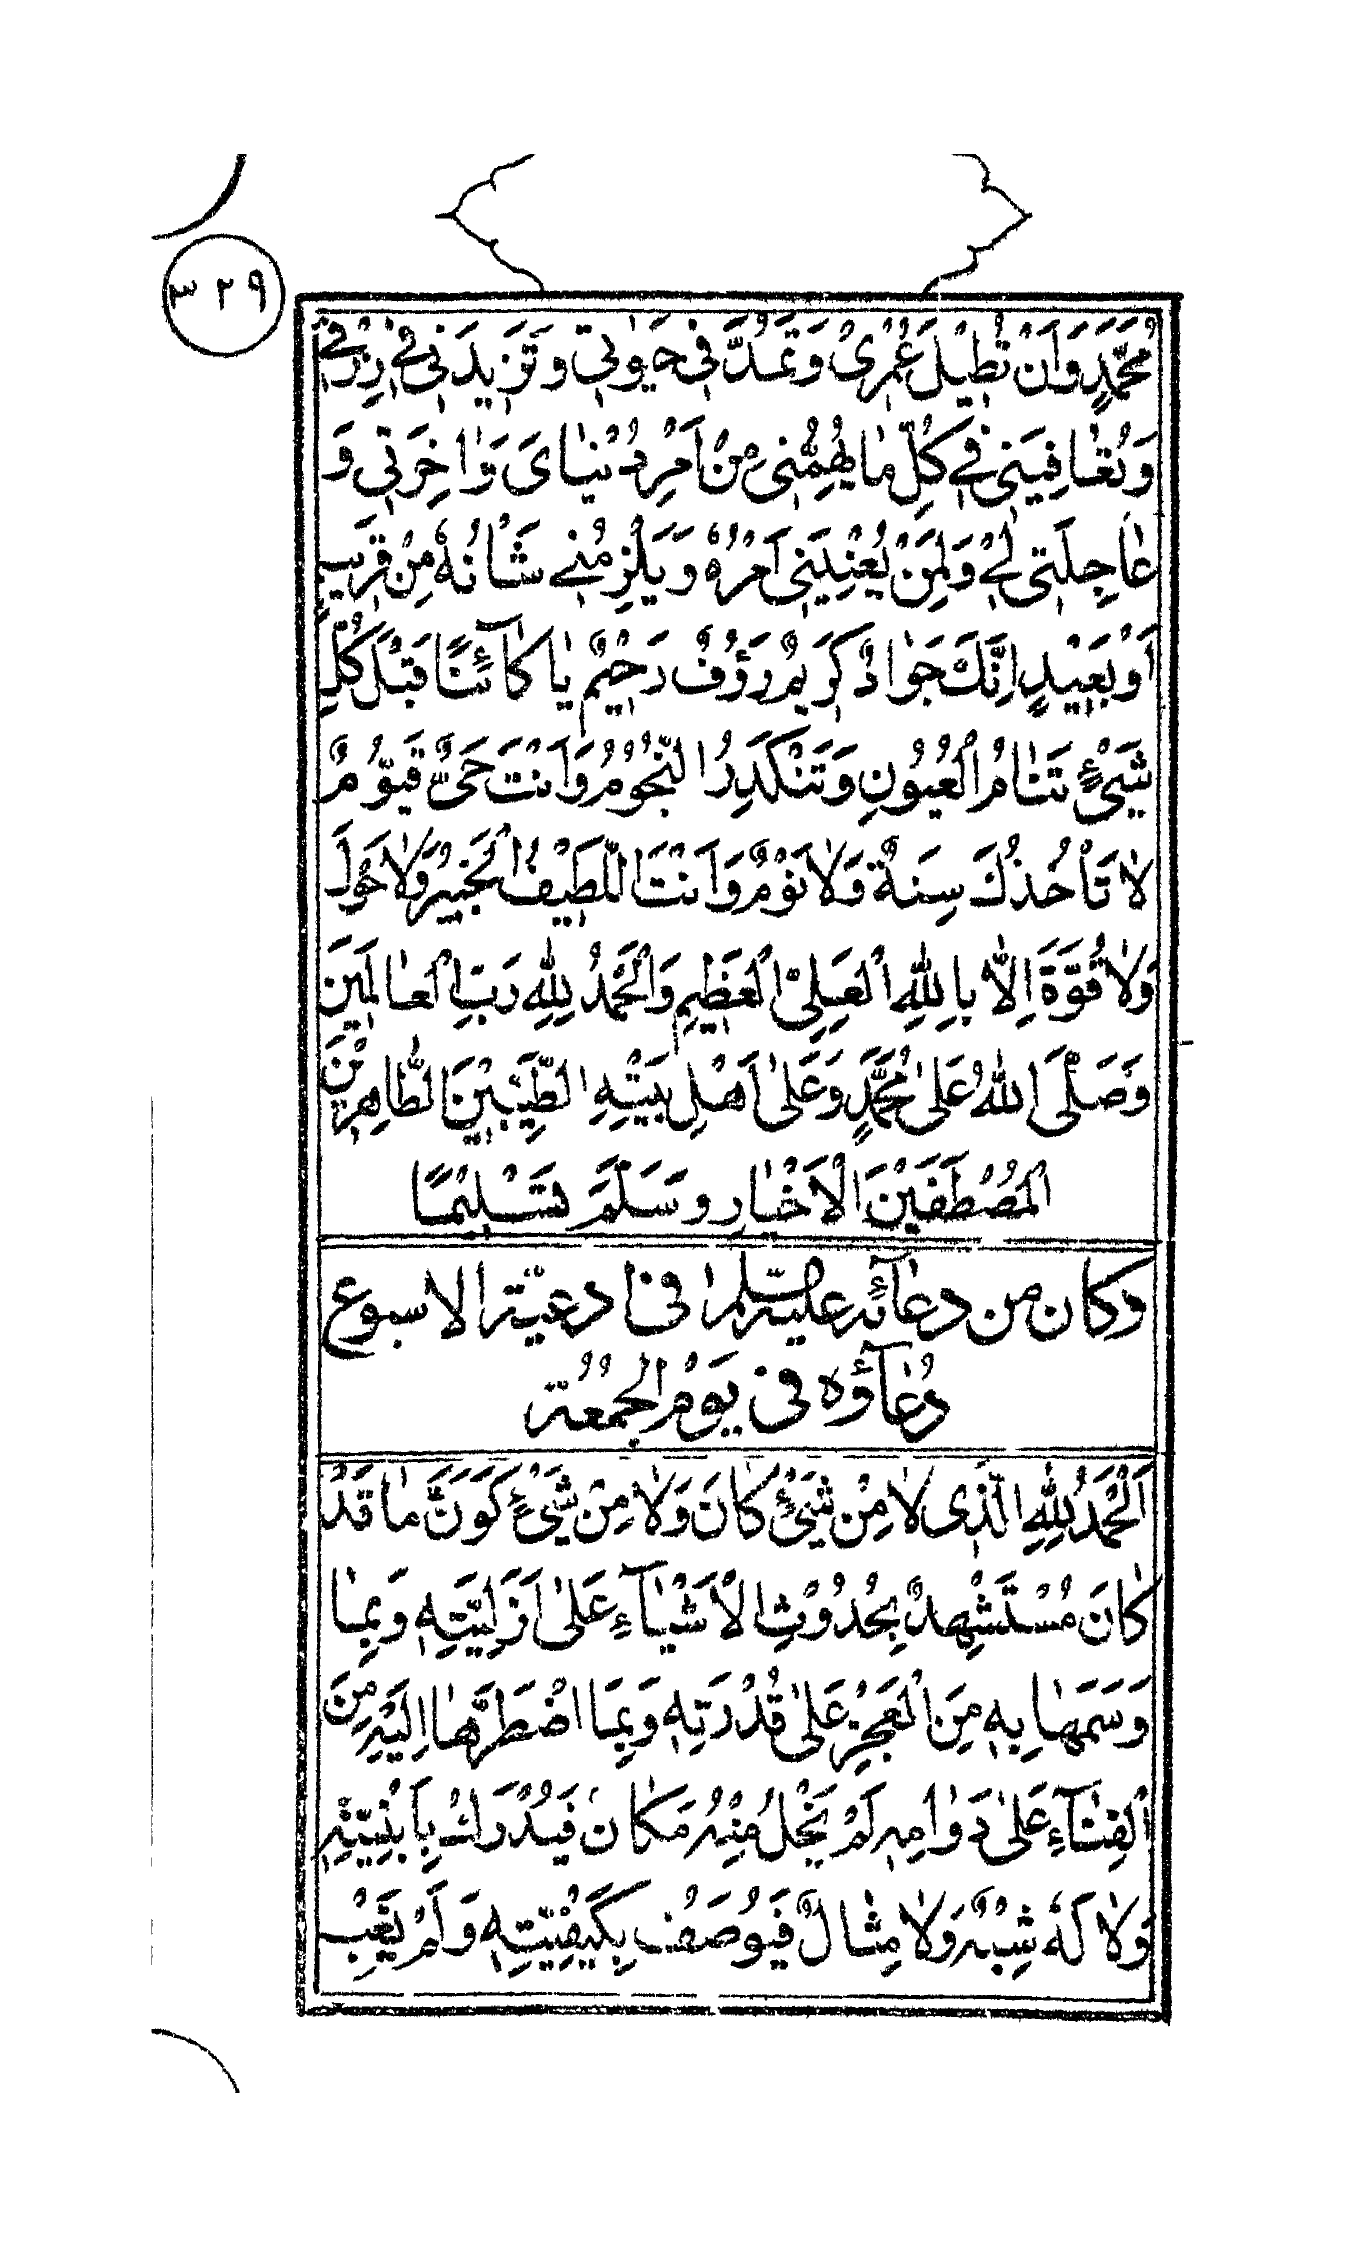 ٣٢٩
مُحَمَّدٍ وَاَنْ تُطِيْلَ عُمُرِىْ وَتَمُدَّ فِىْ حَيٰوتِىْ وَتَزِيْدَنِىْ فِىْ رِزْقِىْ
وَتُعَافِيَنِىْ فِىْ كُلِّ مَا يُهِمُّنِىْ مِنْ اَمْرِ دُنْيَاىَ وَاٰخِرَتِىْ وَ
عَاجِلَتِىْ لِىْ وَلِمَنْ يُعْنِيَنِىْ اَمْرُهٗ وَيَلْزِمُنِىْ شَانُهٗ مِنْ قَرِيبٍ
اَوْ بَعِيْدٍ اِنَّكَ جَوَادٌ كَرِيمٌ رَؤُفٌ رَحِيْمٌ يَا كَآئِنًا قَبْلَ كُلِّ
شَىْءٍ تَنَامُ الْعُيُونِ وَتَنْكَدِرُ النُّجُوْمُ وَاَنْتَ حَىٌّ قَيُّوْمٌ
لَا تَاْخُذُكَ سِنَةٌ وَلَا نَوْمٌ وَاَنْتَ اللَّطِيْفُ الْخَبِيْرُ وَلَا حَوْلَ
وَلَا قُوَّةَ اِلَّا بِاللّٰهِ الْعَلِىِّ الْعَظِيْمِ وَالْحَمْدُ لِلّٰهِ رَبِّ الْعَالَمِيْنَ
وَصَلَّى اللّٰهُ عَلىٰ مُحَمَّدٍ وَعَلىٰ اَهْلِ بَيْتِهِ الطَّيِّبِيْنَ الطَّاهِرِيْنَ
الْمُصْطَفَيْنَ الْاَخْيَارِ وَسَلَّمَ تَسْلِيْمًا
وكان من دعآئه عليه السلام فى ادعية الاسبوع
دُعَآؤه فى يَوْمِ الْجُمُعَة
اَلْحَمْدُ لِلّٰهِ الَّذِى لَا مِنْ شَىْءٍ كَانَ وَلَا مِنْ شَىْءٍ كَوَّنَ مَا قَدْ
كَانَ مُسْتَشْهِدٌ بِحُدُوْثِ الْاَشْيَآءِ عَلىٰ اَزَلِيَّتِهٖ وَبِمَا
وَسَمَهَا بِهٖ مِنَ الْعَجْزِ عَلىٰ قُدْرَتِهٖ وَبِمَا اضْطَرَّهَا اِلَيْهِ مِنَ
الْفَنَآءِ عَلىٰ دَوَامِهٖ لَمْ يَخْلُ مِنْهُ مَكَانٌ فَيُدْرَكُ بِاَيْنِيَّتِهٖ
وَلَا لَهٗ شِبْهٌ وَلَا مِثَالٌ فَيُوصَفُ بِكَيْفِيَّتِهٖ وَلَمْ يَغِبْ